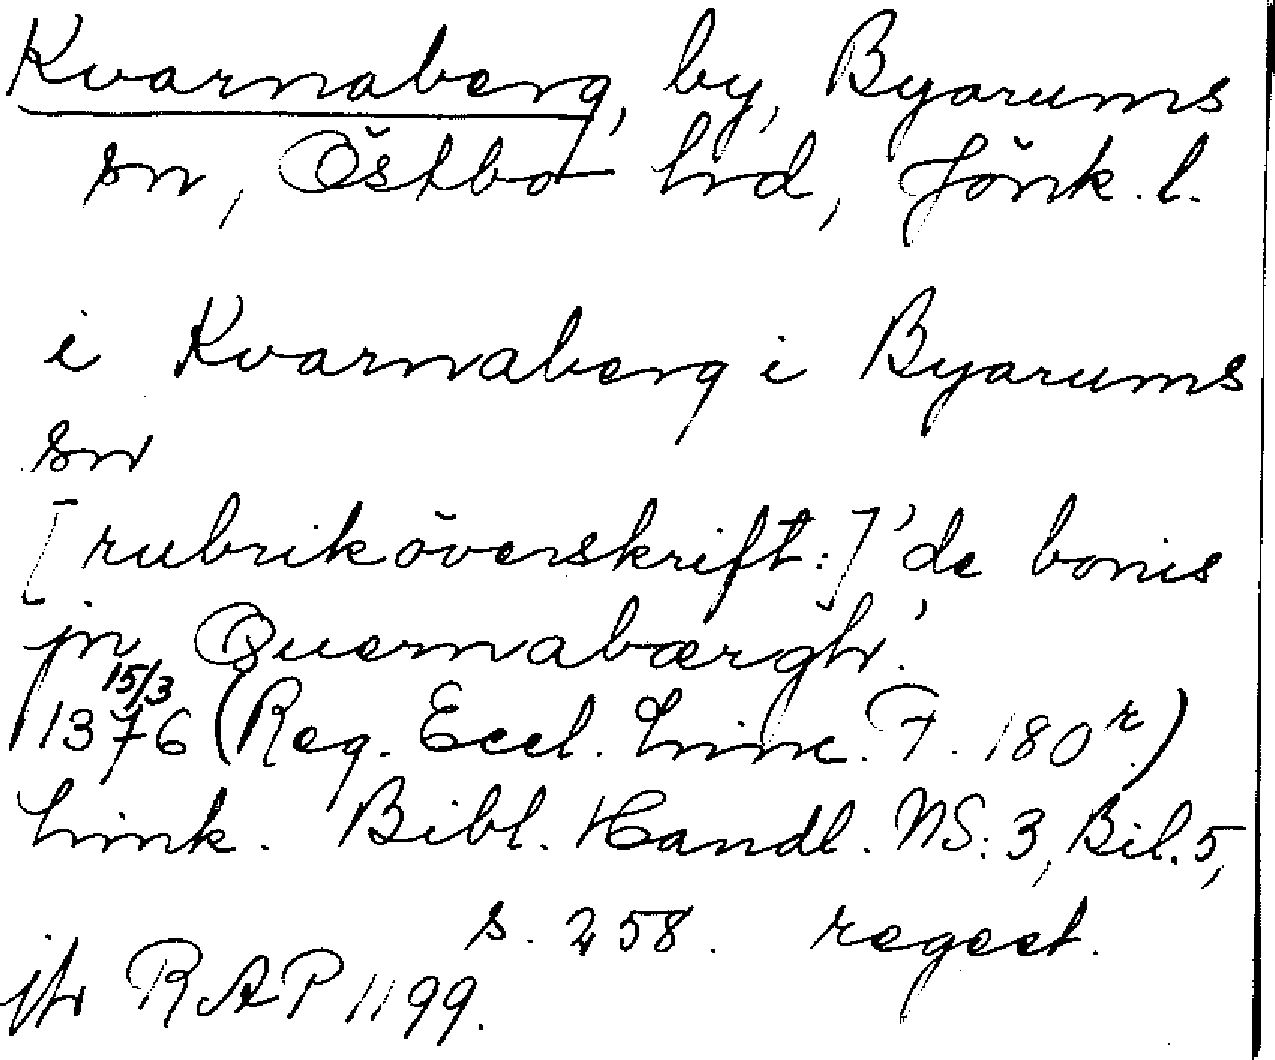 Kvarnaberg, by, Byarums
sn, Östbo hd, Jönk. l.
i Kvarnaberg i Byarums
sn
[rubriköverskrift:] 'de bonis
jn Quernabærgh'.
15/3
1376 (Reg. Eccl. Linc. F. 180r.)
Link. Bibl. Handl. NS: 3, Bil. 5,
s. 258. regest.
jfr RAP 1199.